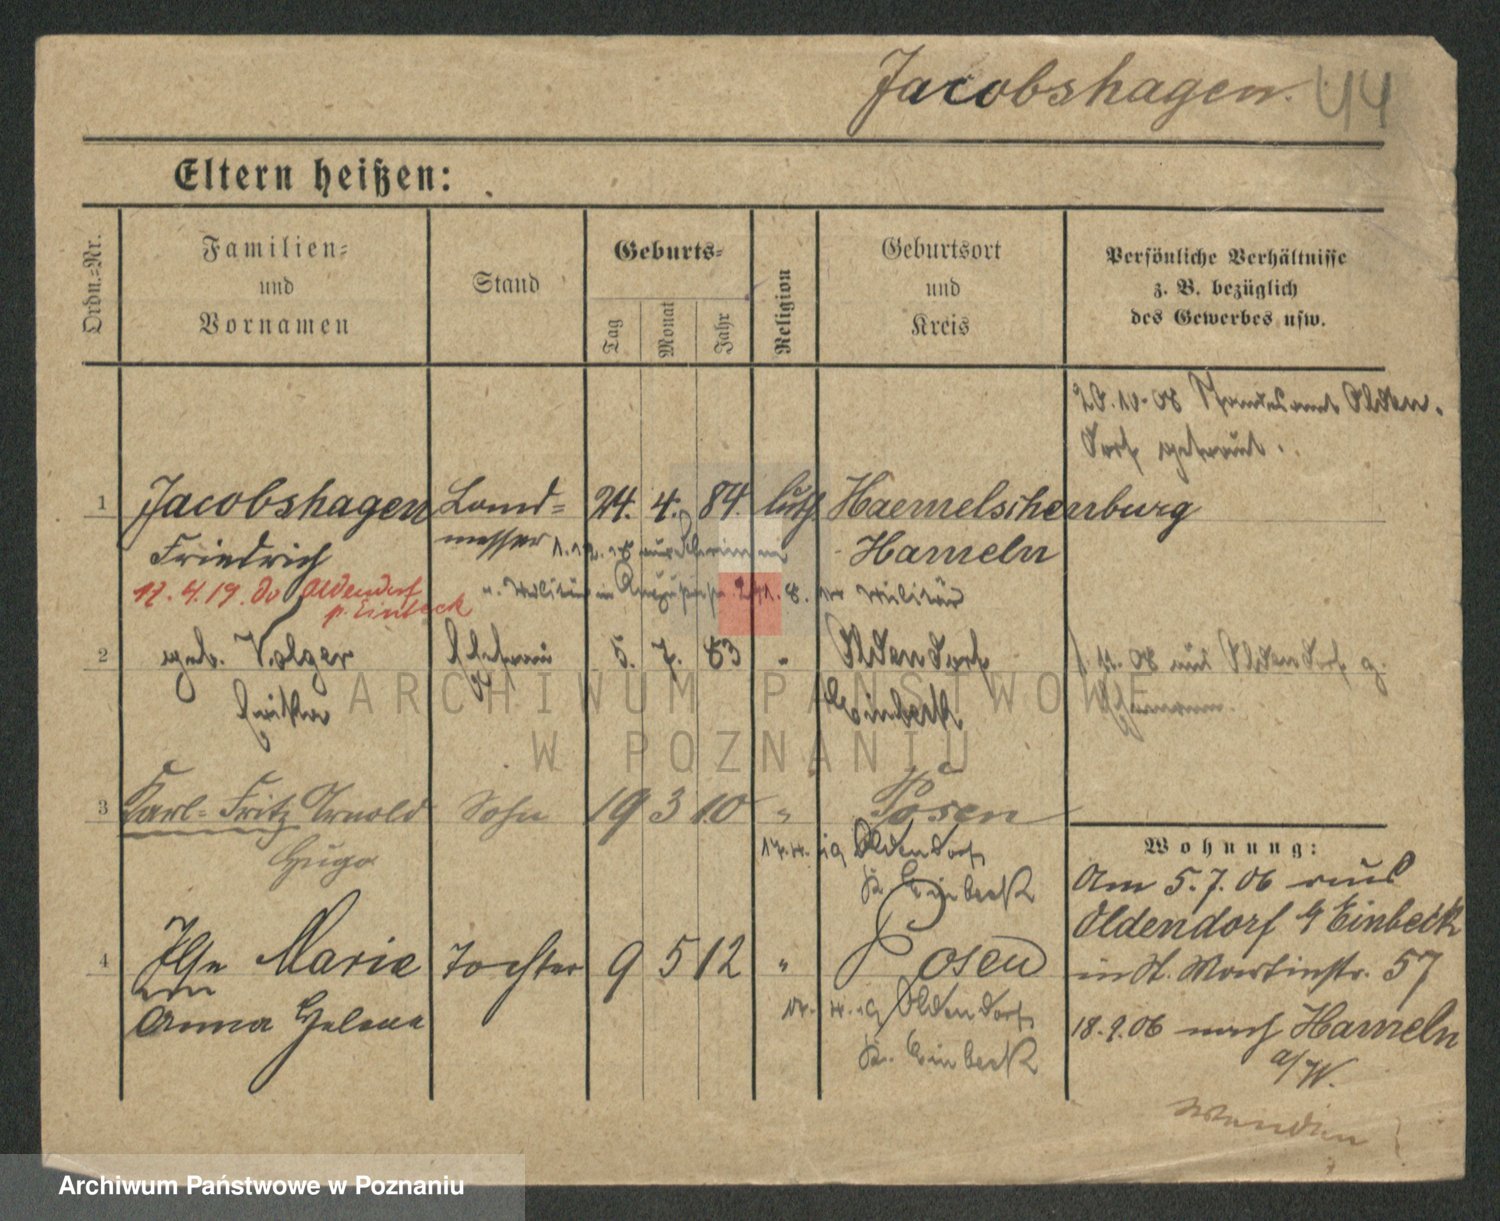 Jacobshagen. 44
Eltern heißen:
Ordn.-Nr.
Familien-
und
Vornamen
Stand
Geburts-
Tag
Monat
Jahr
Religion
Geburtsort
und
Kreis
Persönliche Verhältnisse
z. B. bezüglich
des Gewerbes usw.
20.10.08 Standesamt Olden.
dorf getraut.
1 Jacobshagen Land= 24. 4. 84 luth Haemelschenburg
Friedrich messer Hameln
17.4.19. do Oldendorf
p. Einbeck
2 geb. Volger Ehefrau 5. 7. 83 " Oldendorf 1.11.08 aus Oldendorf
Einbeck
3 Karl- Fritz Arnold Sohn 19 3 10 " Posen
Hugo
Oldendorf
Kr. Einbeck
4 Ilse Marie Tochter 9 5 12 " Posen
Anna Helene
Oldendorf
Kr. Einbeck
Wohnung:
Am 5.7.06 aus
Oldendorf Einbeck
in St. Martinstr. 57
18.9.06 nach Hameln
a/W.
Wenden
ARCHIWUM PAŃSTWOWE
W POZNANIU
Archiwum Państwowe w Poznaniu